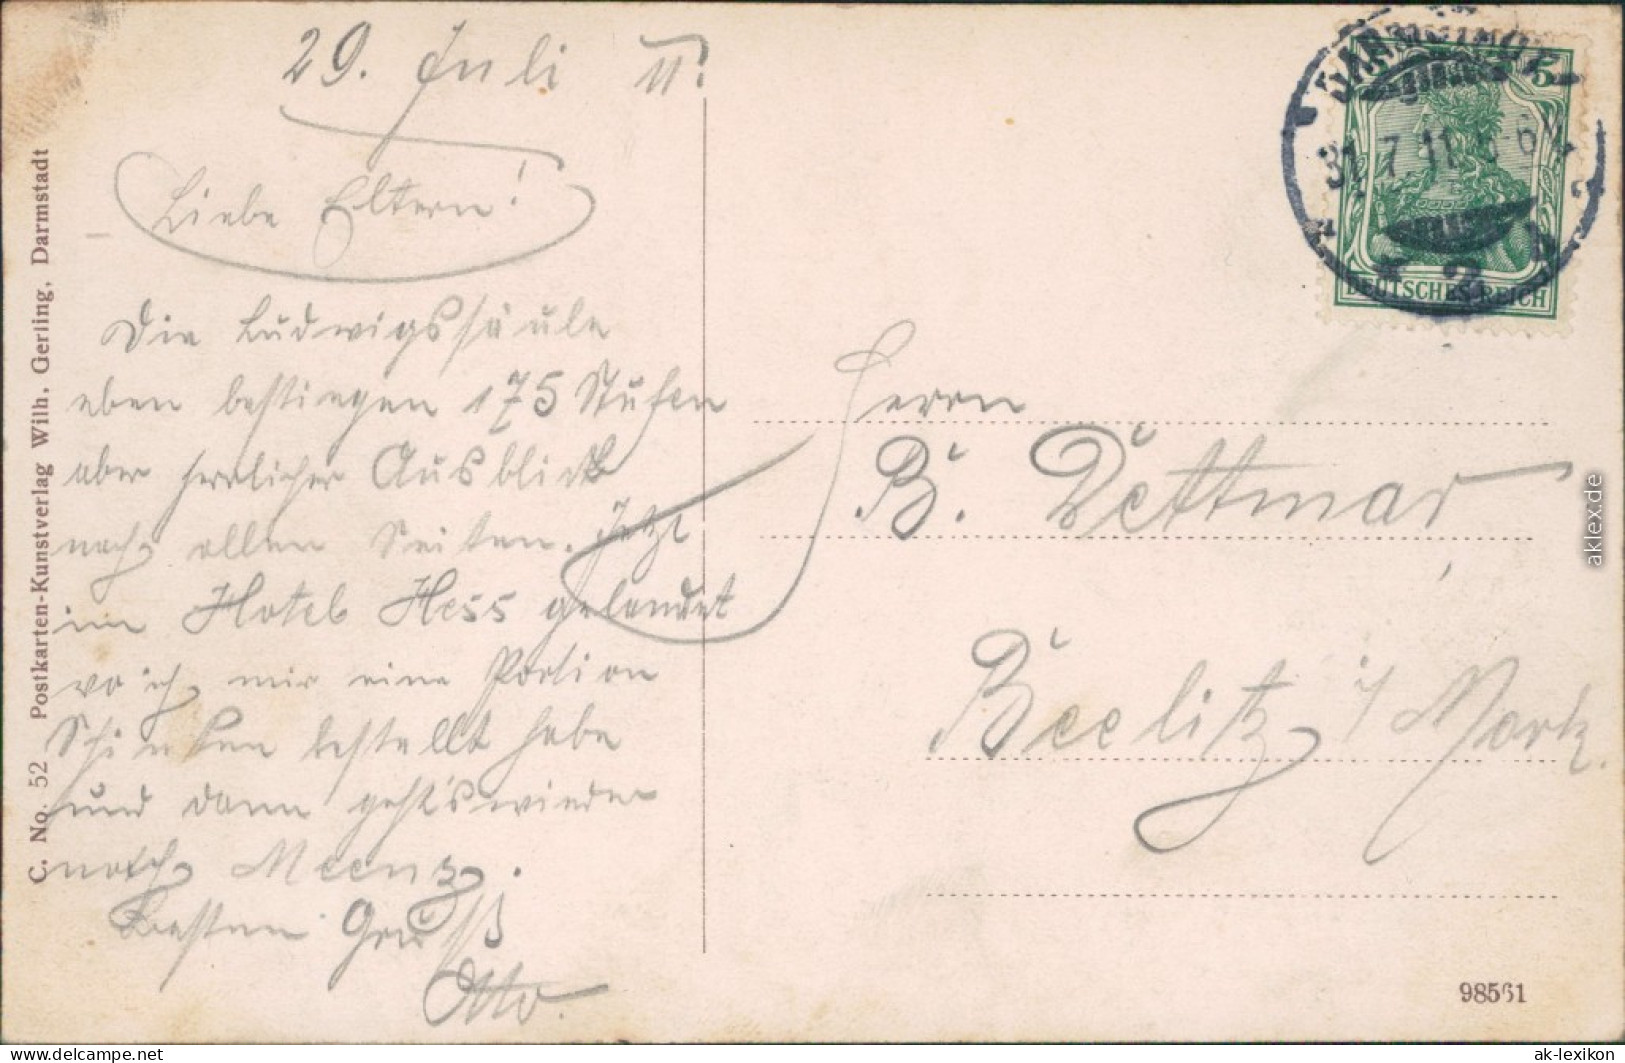 29. Juli 11.
Liebe Eltern!
Die Ludwigssäule
eben bestiegen 175 Stufen
aber herrlicher Ausblick
nach allen Seiten. Jetzt
im Hotel Hess gelandet
wo ich mir eine Portion
Schinken bestellt habe
und dann geht's wieder
nach Meenz.
Besten Gruß
Otto.
Herrn
B. Dettmar
Beelitz i/Mark.
C. No. 52 Postkarten-Kunstverlag Wilh. Gerling, Darmstadt
DARMSTADT
31.7.11. 5-6N
* 2
5
DEUTSCHES REICH
98561
aklex.de
www.delcampe.net
ak-lexikon